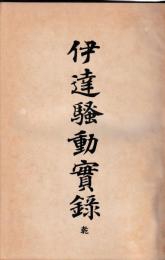 伊達騷動實錄
乾